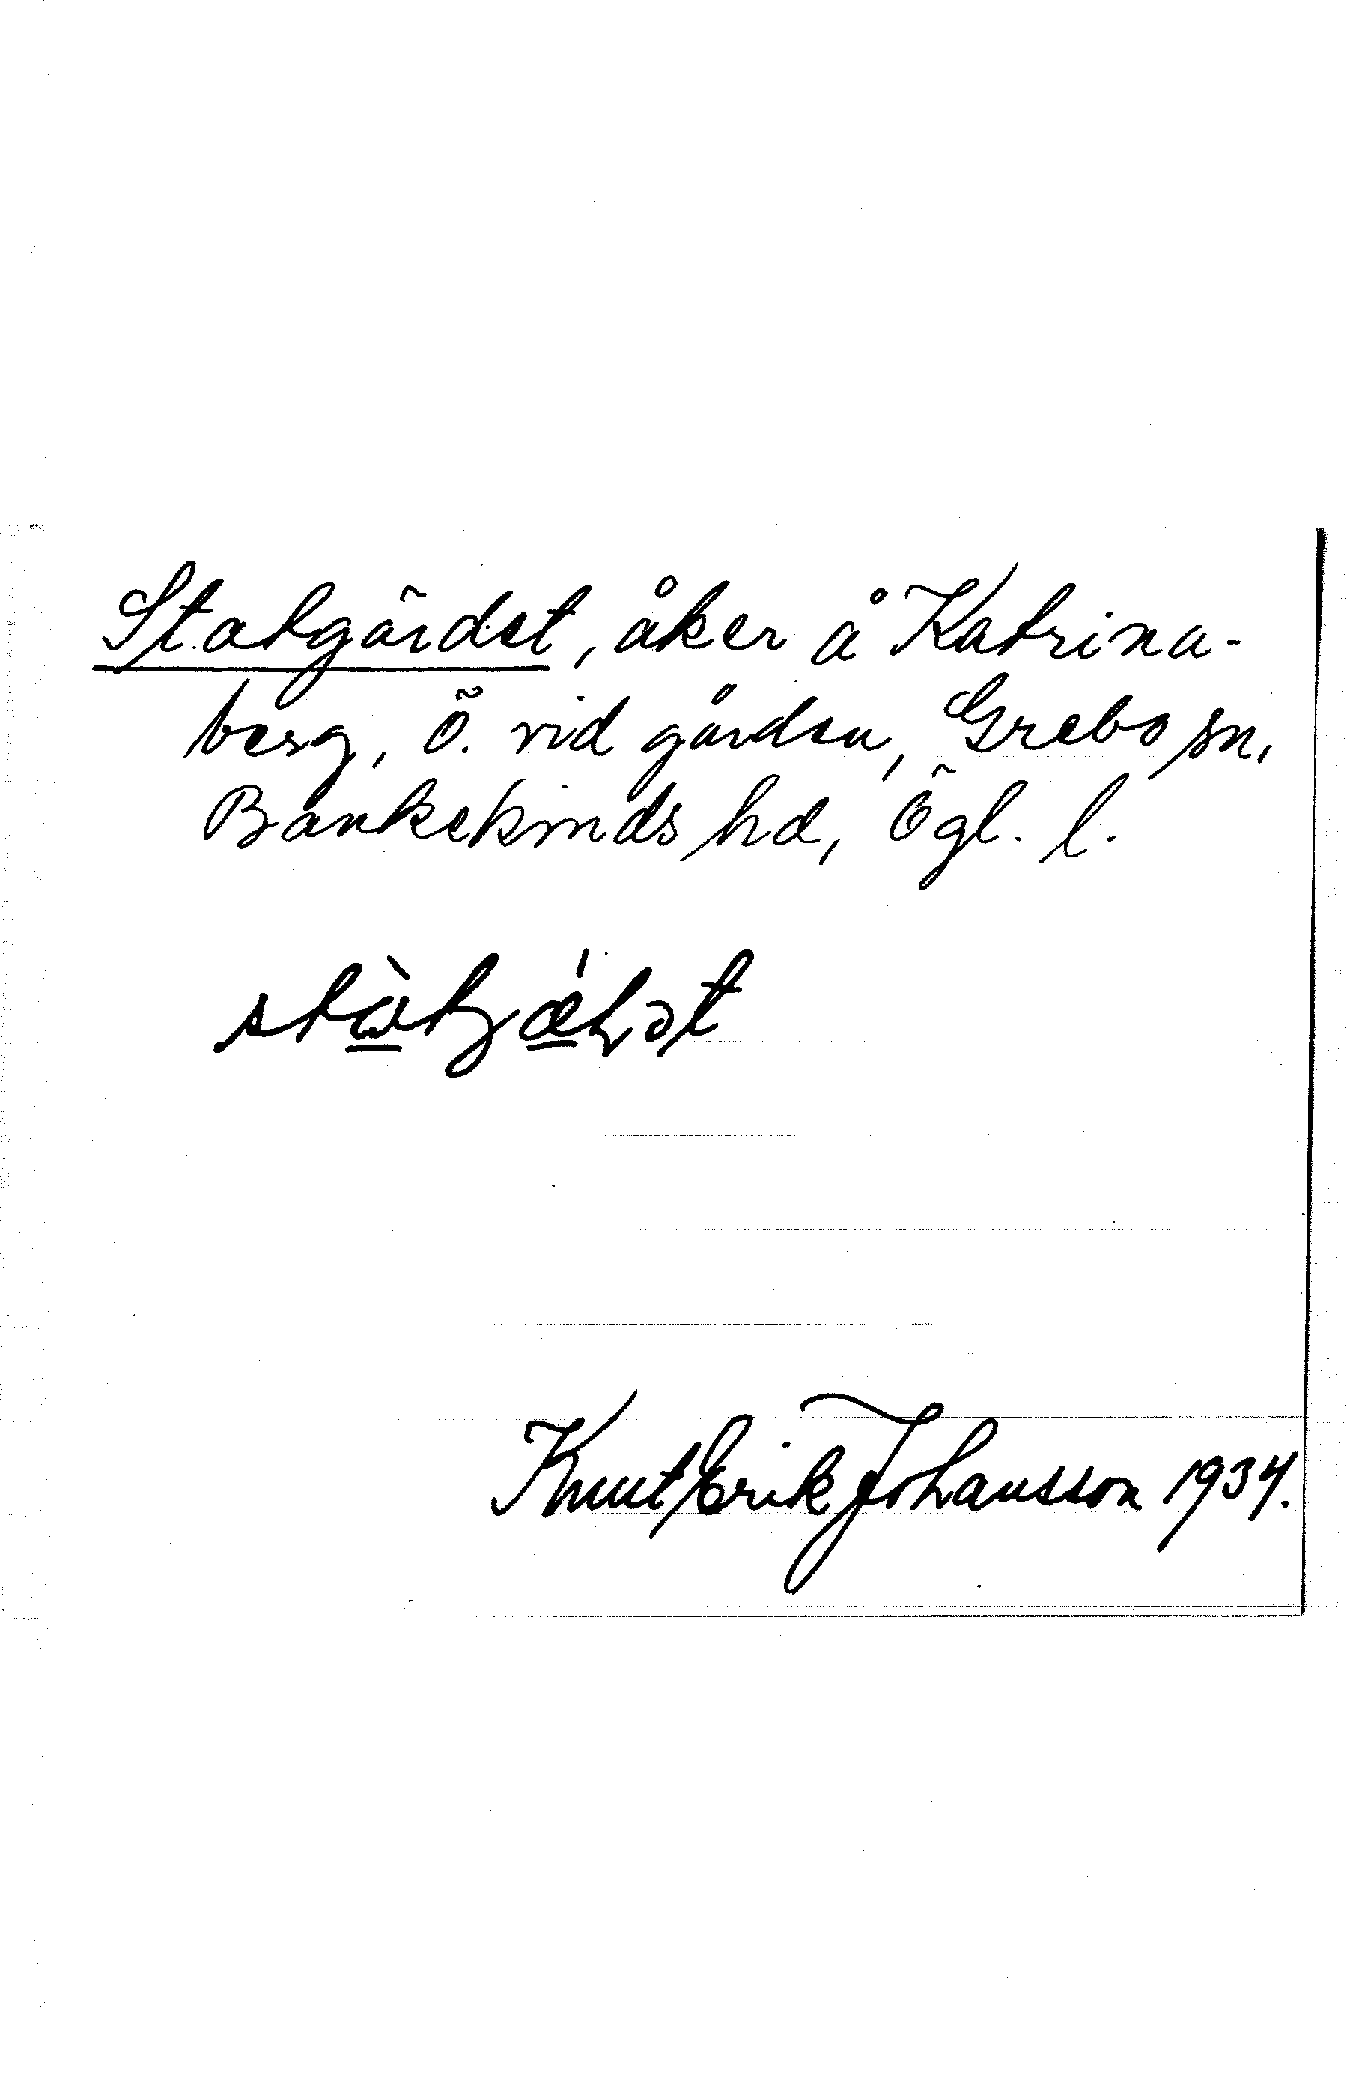 Statgärdet, åker å Katrina-
berg, Ö. vid gården, Grebo sn,
Bankekinds hd, Ögl. l.
Knut Erik Johansson 1934.